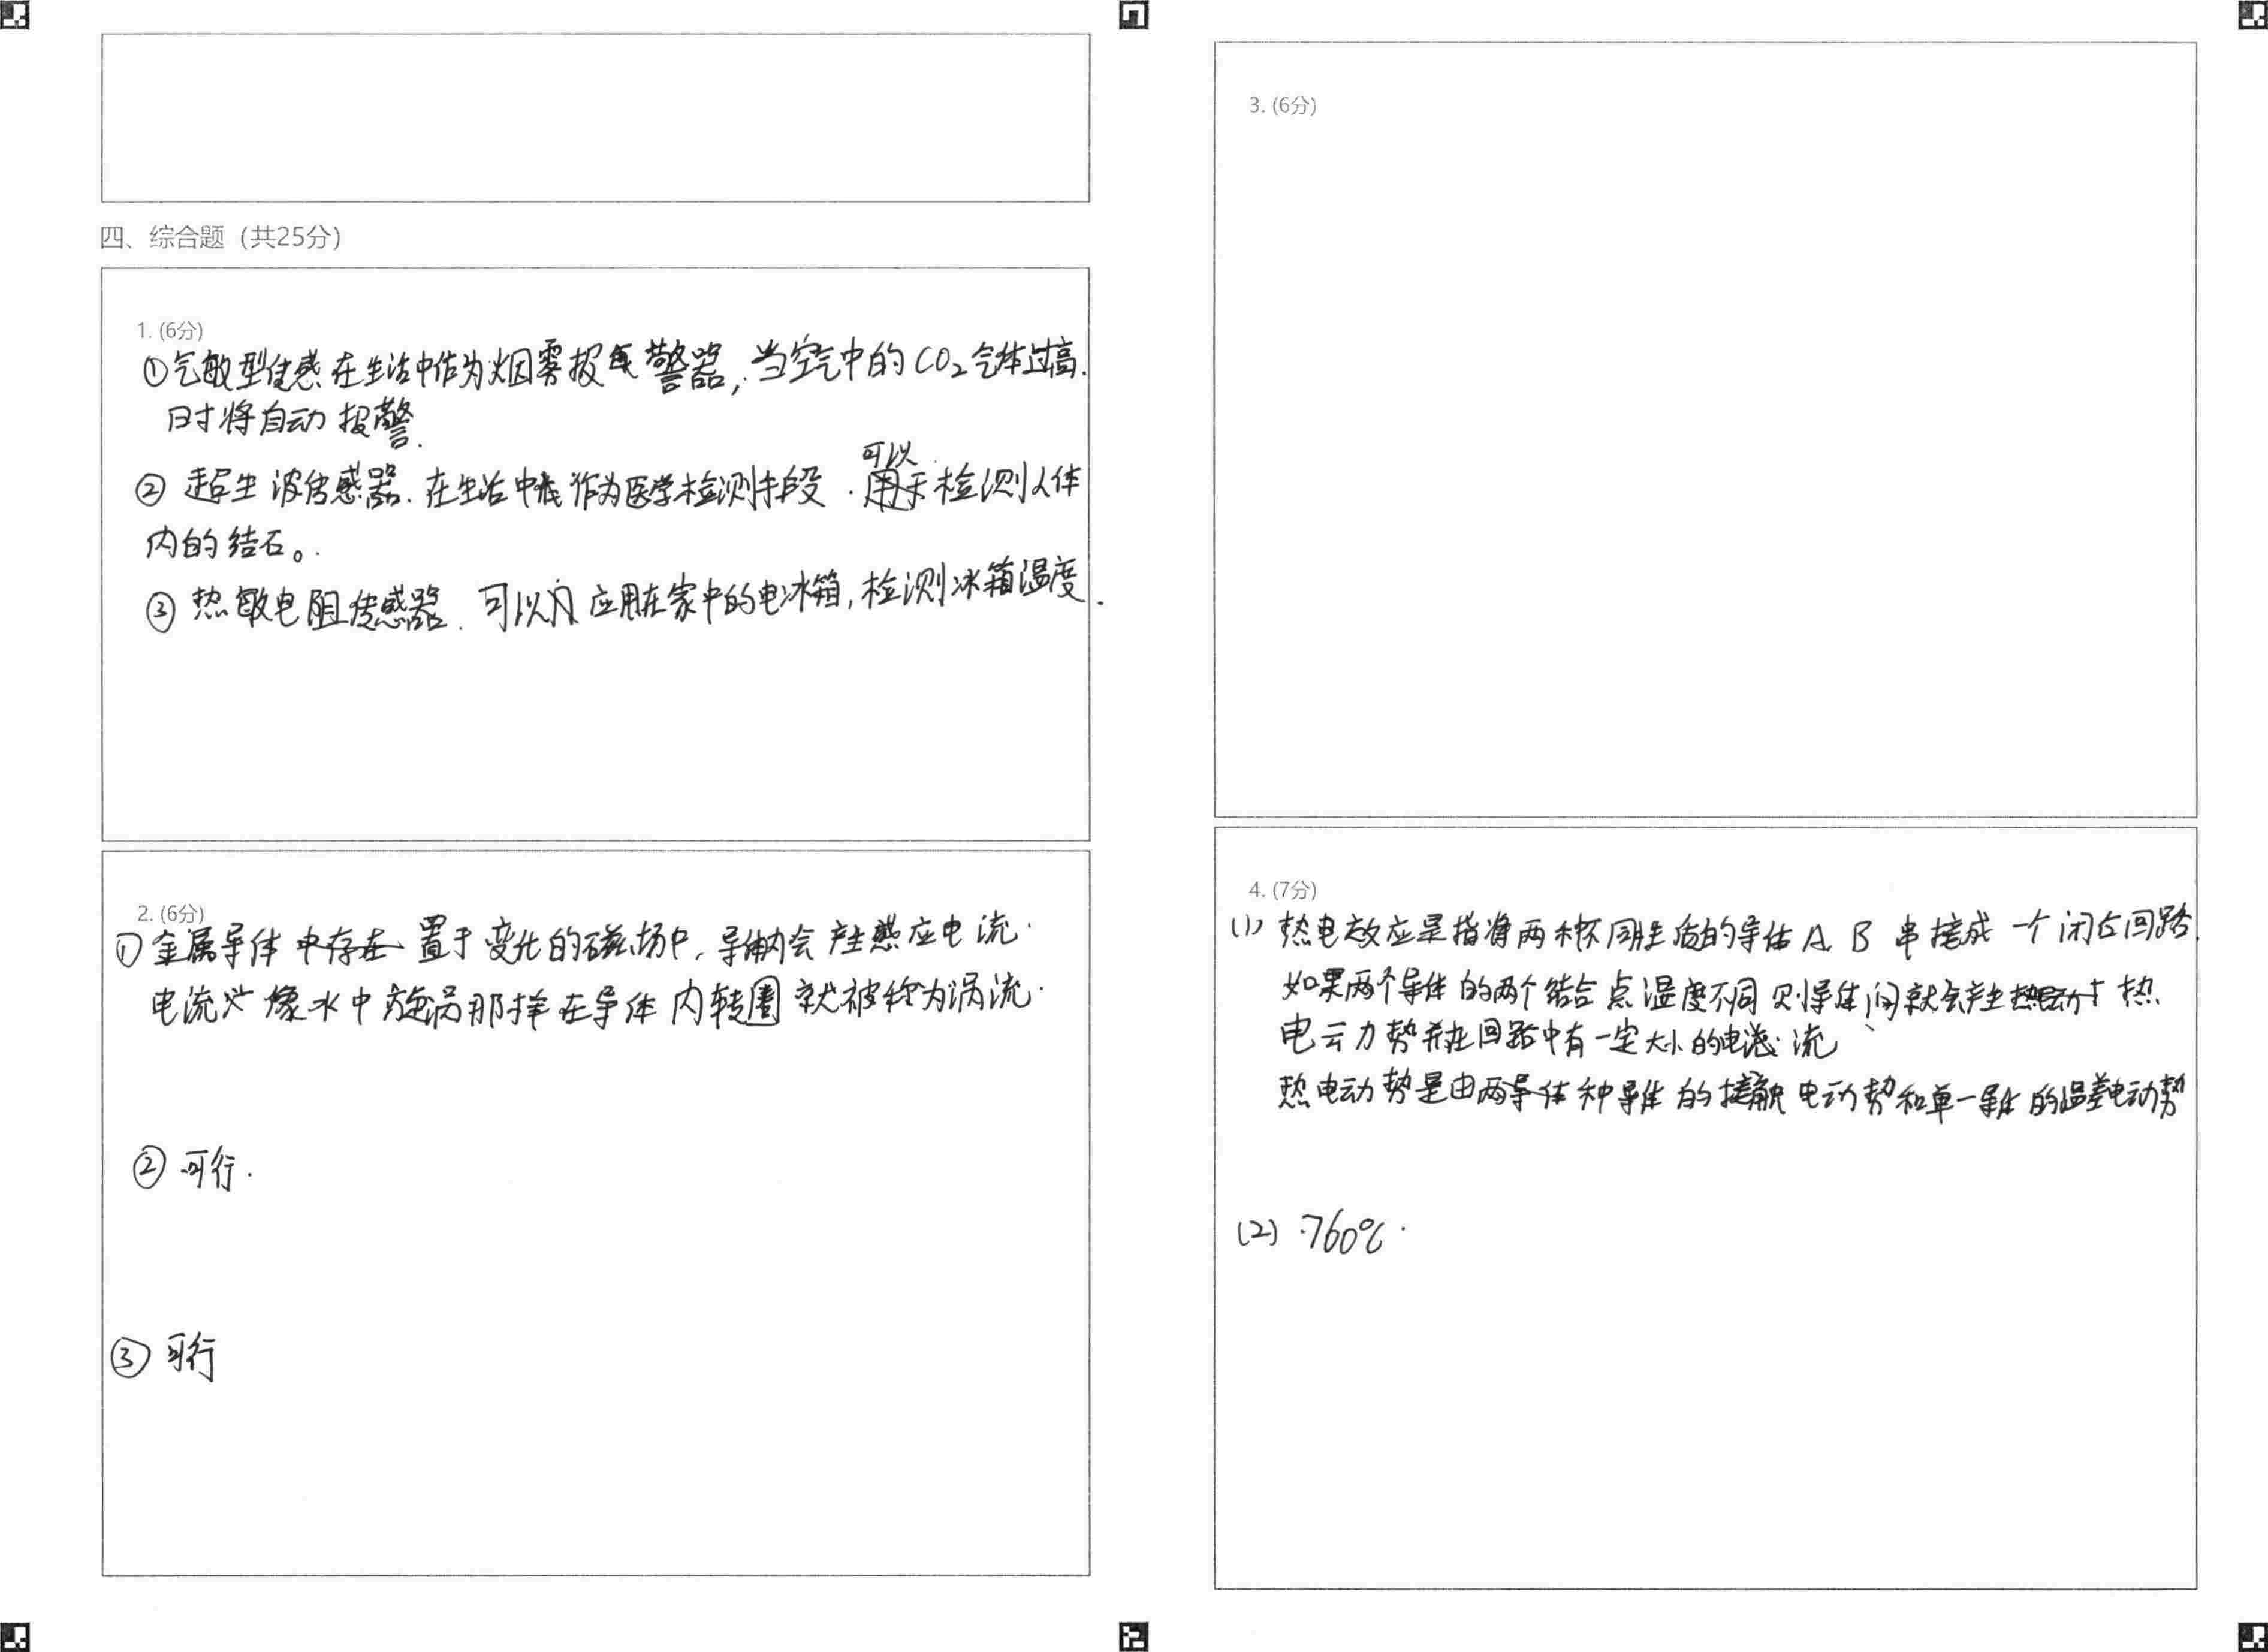 四、综合题（共25分）
1. (6分)
①气敏型传感在生活中作为烟雾报 警器，当空气中的CO₂气体过高.
时将自动报警.
可以
②超生波传感器.在生活中 作为医学检测手段.用于检测人体
内的结石。.
③热敏电阻传感器.可以 应用在家中的电冰箱,检测冰箱温度.
2. (6分)
①金属导体中存在 置于变化的磁场中,导体内会产生感应电流.
电流 像水中旋涡那样在导体内转圈就被称为涡流.
②可行.
③可行
3. (6分)
4. (7分)
(1) 热电效应是指将两种不同性质的导体A.B串接成一个闭合回路.
如果两个导体的两个结合点温度不同则导体间就会产生热电动 热
电动力势并在回路中有一定大小的电 流
热电动势是由两导体种导体的接触电动势和单一导体的温差电动势
(2) 760℃.